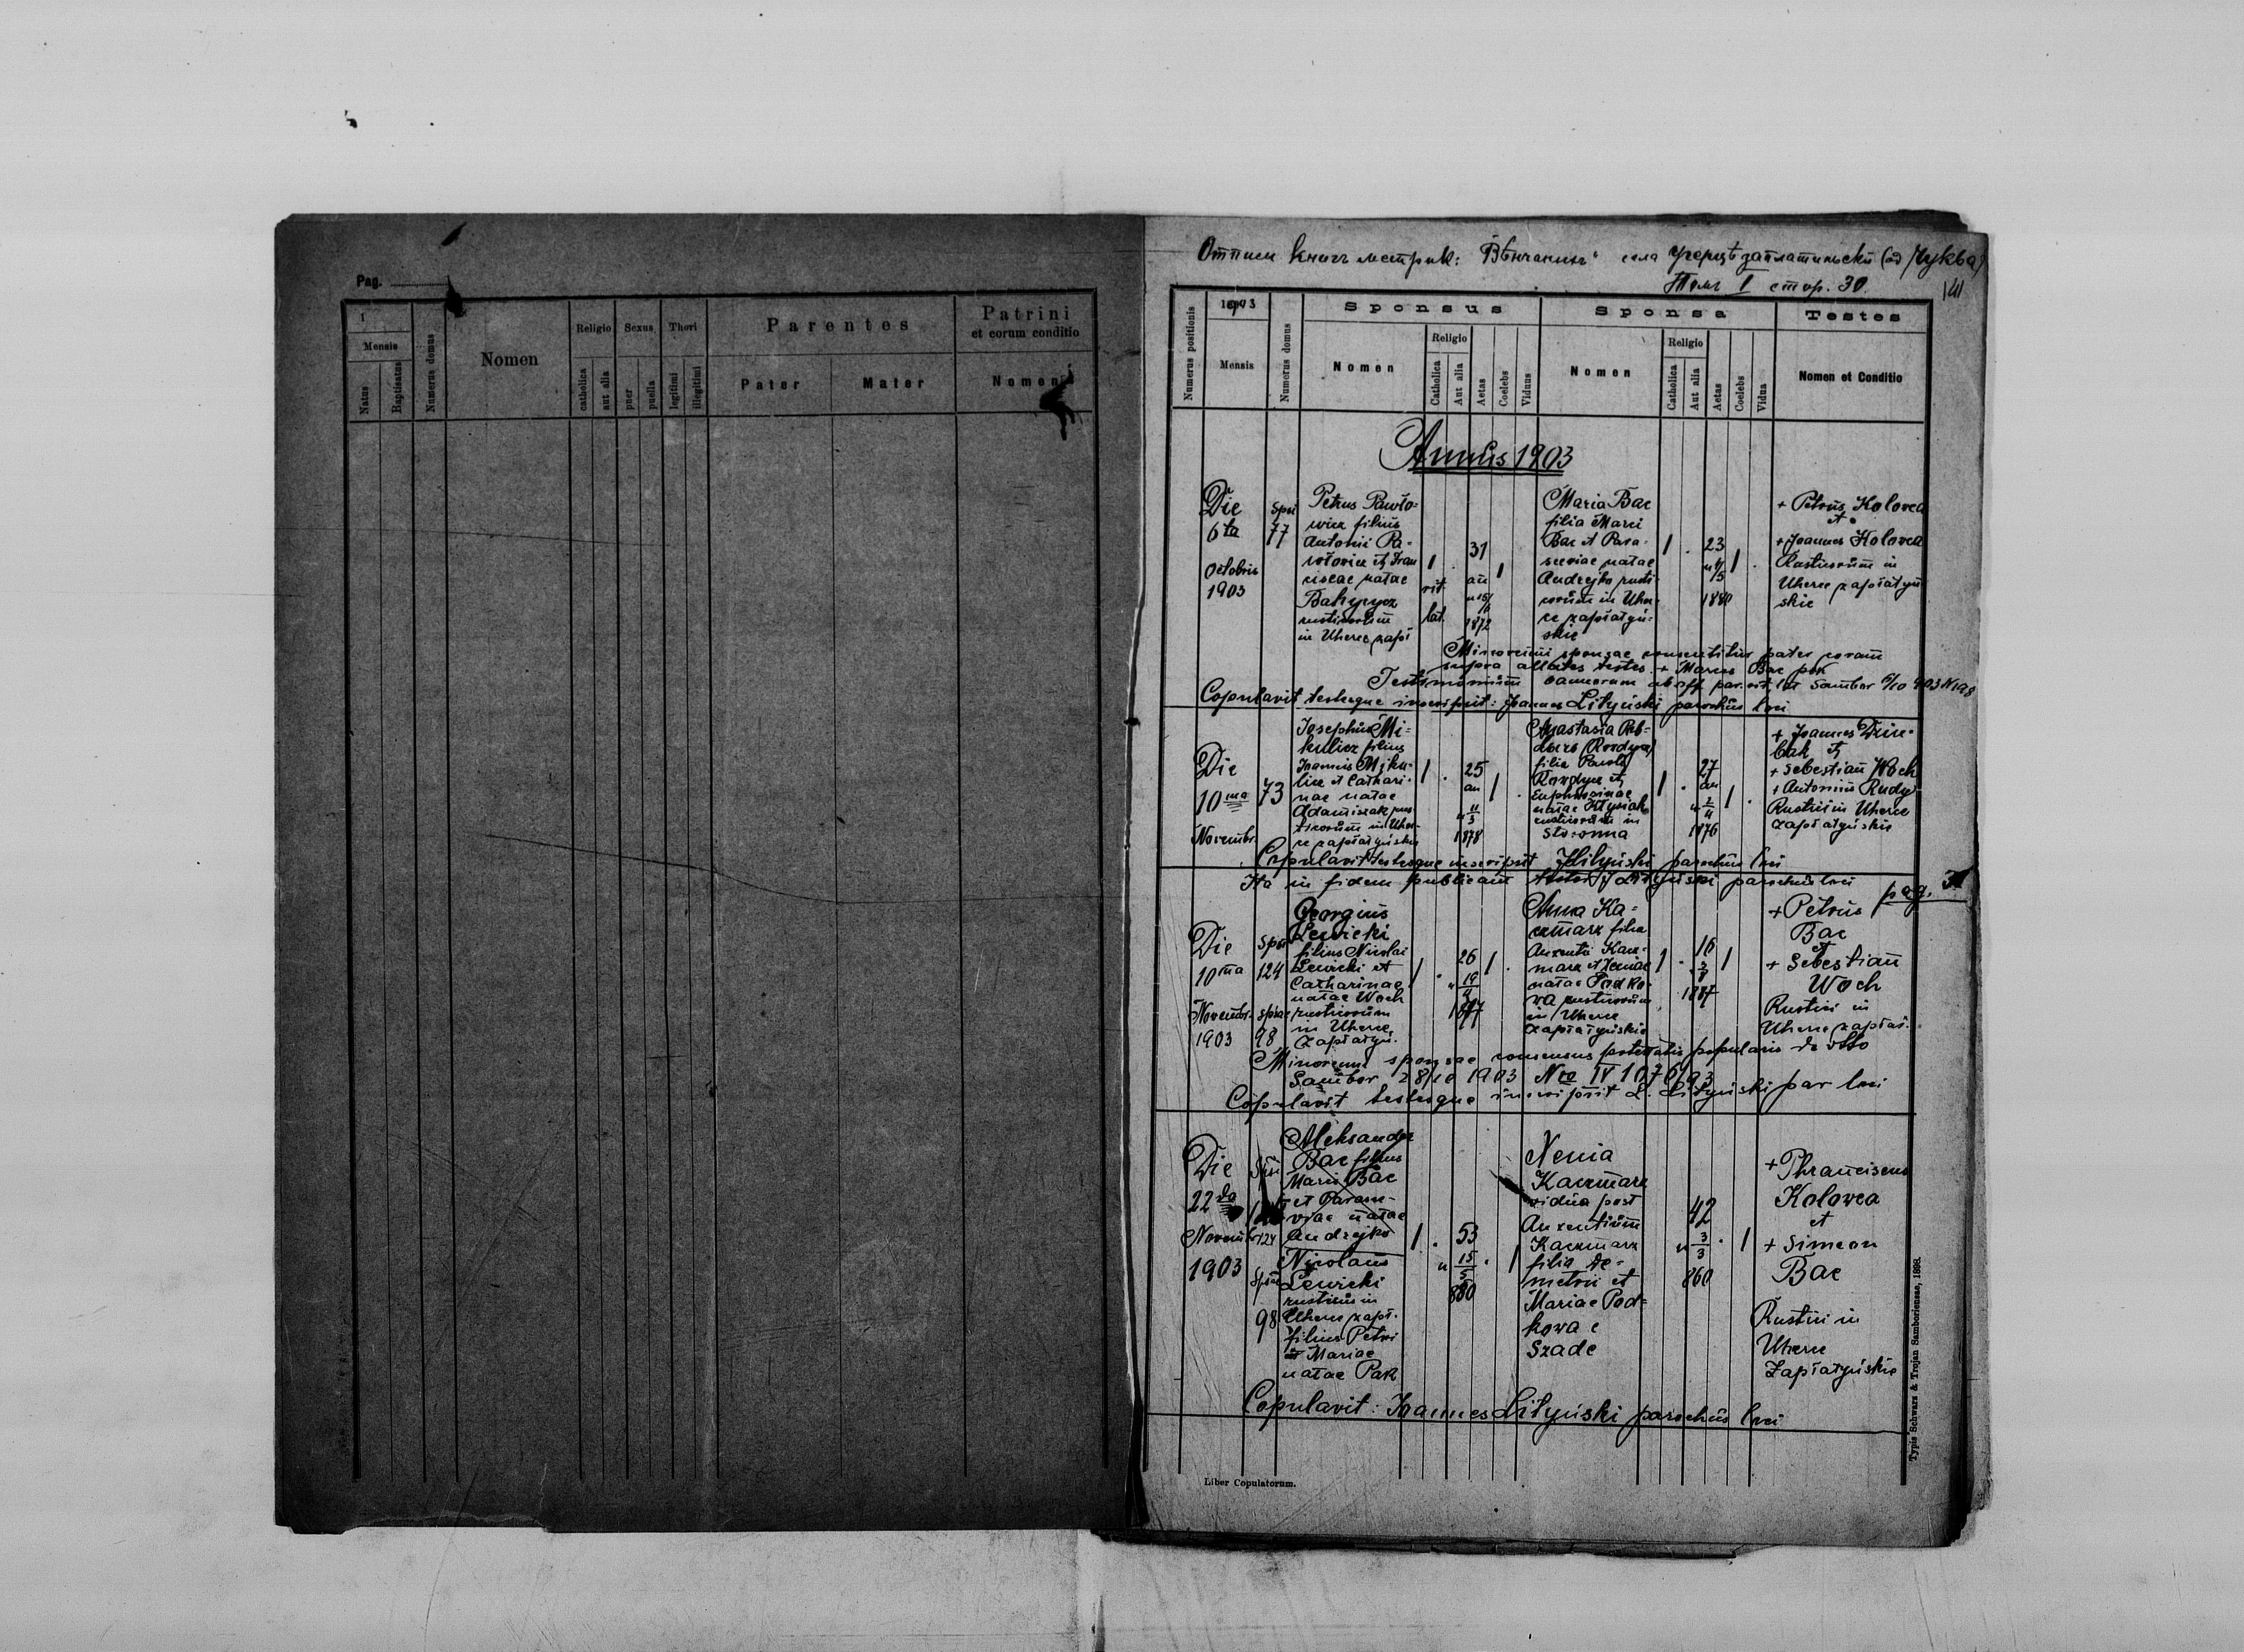 Pag.
1
Mensis
Natus
Baptisatus
Numerus domus
Nomen
Religio
catholica
aut alia
Sexus
puer
puella
Thori
legitimi
illegitimi
Parentes
Pater
Mater
Patrini
et eorum conditio
Nomen
Отпись книгъ метрик: "Вѣнчанихъ" села
Томъ I стор. 30.
141
Numerus positionis
1903
Mensis
Numerus domus
Sponsus
Nomen
Religio
Catholica
Aut alia
Aetas
Coelebs
Viduus
Sponsa
Nomen
Religio
Catholica
Aut alia
Aetas
Coelebs
Vidua
Testes
Nomen et Conditio
Annus 1903
Die
6ta
Octobris
1903
Spsi
77
Petrus Pawło-
wicz filius
Antonii Pa-
włowicz et Fran
ciscae natae
rusticorum
in Uherce zapł
1
rit.
lat.
31
an
1872
1
Maria Bac
filia Marci
Bac et Para-
sceviae natae
Andrejko rusti-
corum in Uher-
ce zapłatyń-
skie
1
23
1880
1
+ Petrus Kolowca
et
+ Joannes Kolowca
Rusticorum in
Uherce zapłatyń
skie
Minorenni sponsae consentitur pater coram
supra allatos testes + Marcus Bac
Testimonium bannorum ab off. par. rit. lat Sambor 6/10 903 N 198
Copulavit testesque inscripsit: Joannes Lityński parochus loci
Die
10ma
Novembr.
73
Josephus Mi-
kulicz filius
Joannis Miku-
licz et Cathari-
nae natae
Adamiszak rus
ticorum in Uher-
ce zapłatyńskie
1
25
an
11/3
1878
1
Anastasia
filia Pauli
et
Euphrosinae
natae
rusticorum in
Stronna
1
27
an
2/11
1876
1
+ Joannes
et
+ Sebestian Woch
+ Antonius Rudy
Rustici in Uherce
zapłatyńskie
Copulavit testesque inscripsit J Lityński parochus loci
Ita in fidem publicam testor J Lityński parochus loci
pag. 31
Die
10ma
Novembr.
1903
Spsi
124
spsae
98
Georgius
Lewicki
filius Nicolai
Lewicki et
Catharinae
natae Woch
rusticorum
in Uherce
Zapłatyń.
1
26
19/4
1877
1
Anna Ka-
czmarz filia
Auxentii Kacz-
marz et Xeniae
natae Podko-
va rusticorum
in Uherce
zapłatyńskie
1
16
1887
1
+ Petrus
Bac
et
+ Sebestian
Woch
Rustici in
Uherce zapłat.
Minorenni sponsae consensus potestatis
Sambor 28/10 1903 Nro IV
Copulavit testesque inscripsit Lityński par loci
Die
22da
Novembr
1903
Spsi
124
98
Aleksander
Bac filius
Marci Bac
et Parasce-
viae natae
Andrejko
Nicolaus
Lewicki
rusticus in
Uherce zapł.
filius Petri
et Mariae
natae Pak
1
53
15/5
1
Xenia
Kaczmarz
vidua post
Auxentium
Kaczmarz
filia De-
metrii et
Mariae Pod-
kowa e
Szade
42
3/3
860
1
+ Phranciscus
Kolowca
et
+ Simeon
Bac
Rustici in
Uherce
Zapłatyńskie
Copulavit: Joannes Lityński parochus loci
Liber Copulatorum.
Typis Schwarz & Trojan Samboriensae, 1898.